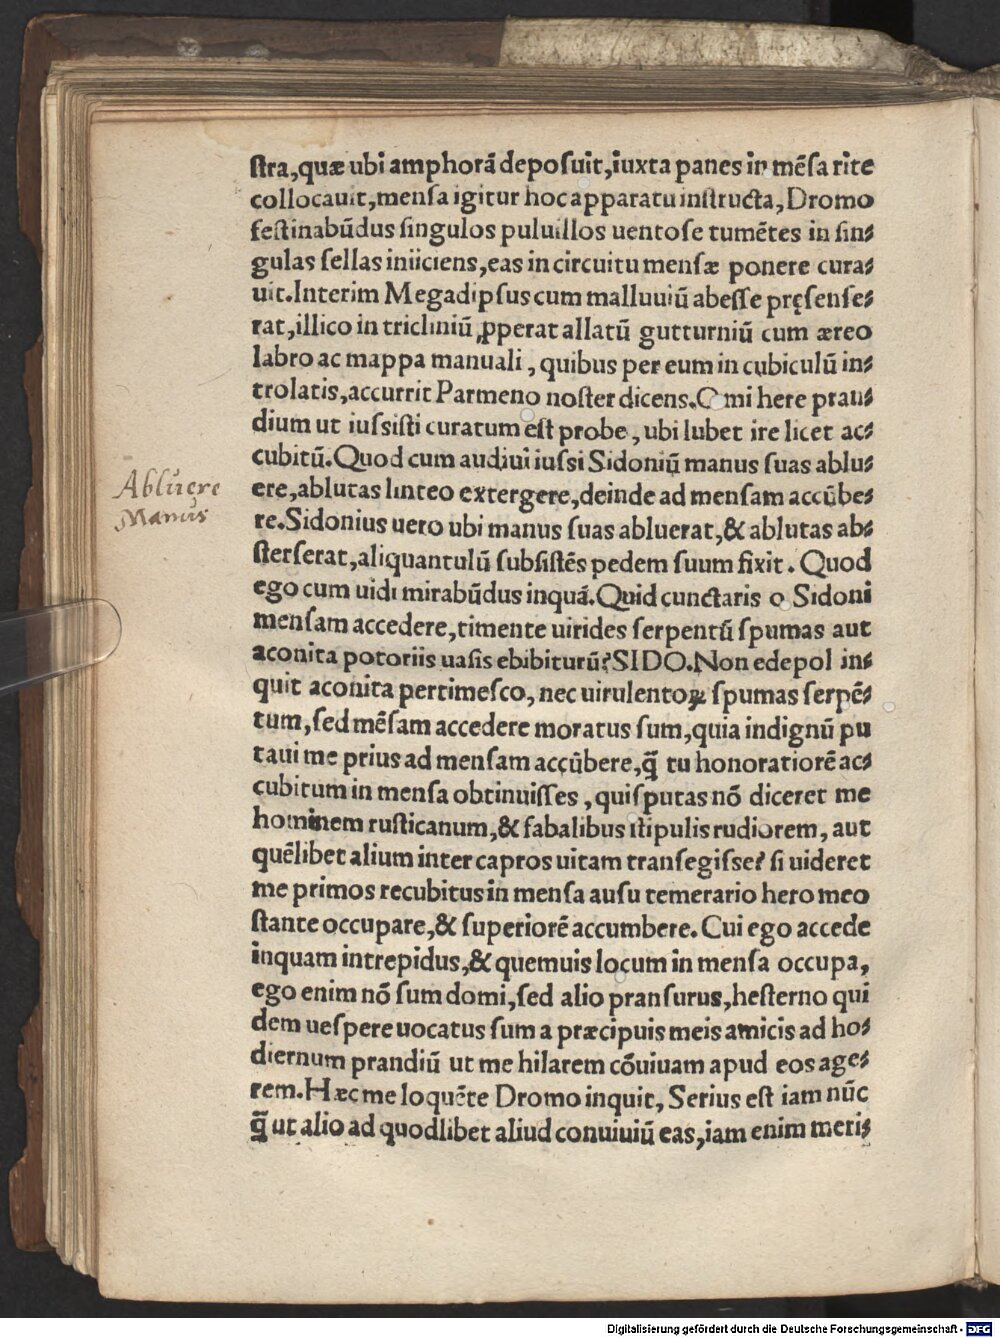 stra,quæ ubi amphorā deposuit,iuxta panes in mēsa rite
collocauit,mensa igitur hoc apparatu instructa,Dromo
festinabūdus singulos puluillos uentose tumētes in sin⸗
gulas sellas iniiciens,eas in circuitu mensæ ponere cura⸗
uit.Interim Megadipsus cum malluuiū abesse pręsense⸗
rat,illico in tricliniū ꝓperat allatū gutturniū cum æreo
labro ac mappa manuali, quibus per eum in cubiculū in⸗
trolatis,accurrit Parmeno noster dicens.O mi here prau⸗
dium ut iussisti curatum est probe, ubi lubet ire licet ac⸗
cubitū.Quod cum audiui iussi Sidoniū manus suas ablu⸗
ere,ablutas linteo extergere,deinde ad mensam accūbe⸗
Abluere
Manus
re.Sidonius uero ubi manus suas abluerat,& ablutas ab⸗
sterserat,aliquantulū subsistēs pedem suum fixit. Quod
ego cum uidi mirabūdus inquā.Quid cunctaris o Sidoni
mensam accedere,timente uirides serpentū spumas aut
aconita potoriis uasis ebibiturū?SIDO.Non edepol in⸗
quit aconita pertimesco, nec uirulentoꝝ spumas serpē⸗
tum,sed mēsam accedere moratus sum,quia indignū pu
taui me prius ad mensam accūbere,q̄ tu honoratiorē ac⸗
cubitum in mensa obtinuisses, quis putas nō diceret me
hominem rusticanum,& fabalibus stipulis rudiorem, aut
quēlibet alium inter capros uitam transegisse? si uideret
me primos recubitus in mensa ausu temerario hero meo
stante occupare,& superiorē accumbere. Cui ego accede
inquam intrepidus,& quemuis locum in mensa occupa,
ego enim nō sum domi,sed alio pransurus,hesterno qui
dem uespere uocatus sum a præcipuis meis amicis ad ho⸗
diernum prandiū ut me hilarem cōuiuam apud eos age⸗
rem.Hæc me loquēte Dromo inquit, Serius est iam nūc
q̄ ut alio ad quodlibet aliud conuiuiū eas,iam enim meri⸗
Digitalisierung gefördert durch die Deutsche Forschungsgemeinschaft - DFG